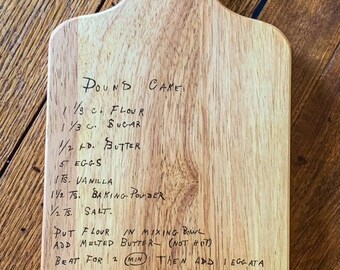 POUND CAKE.
1 1/3 C. FLOUR
1 1/3 C. SUGAR
1/2 LD. BUTTER
5 EGGS
1 TS. VANILLA
1 1/2 TS. BAKING POWDER
1/2 TS. SALT.
PUT FLOUR IN MIXING BOWL
ADD MELTED BUTTER (NOT HOT)
BEAT FOR 2 MIN THEN ADD 1 EGG ATA